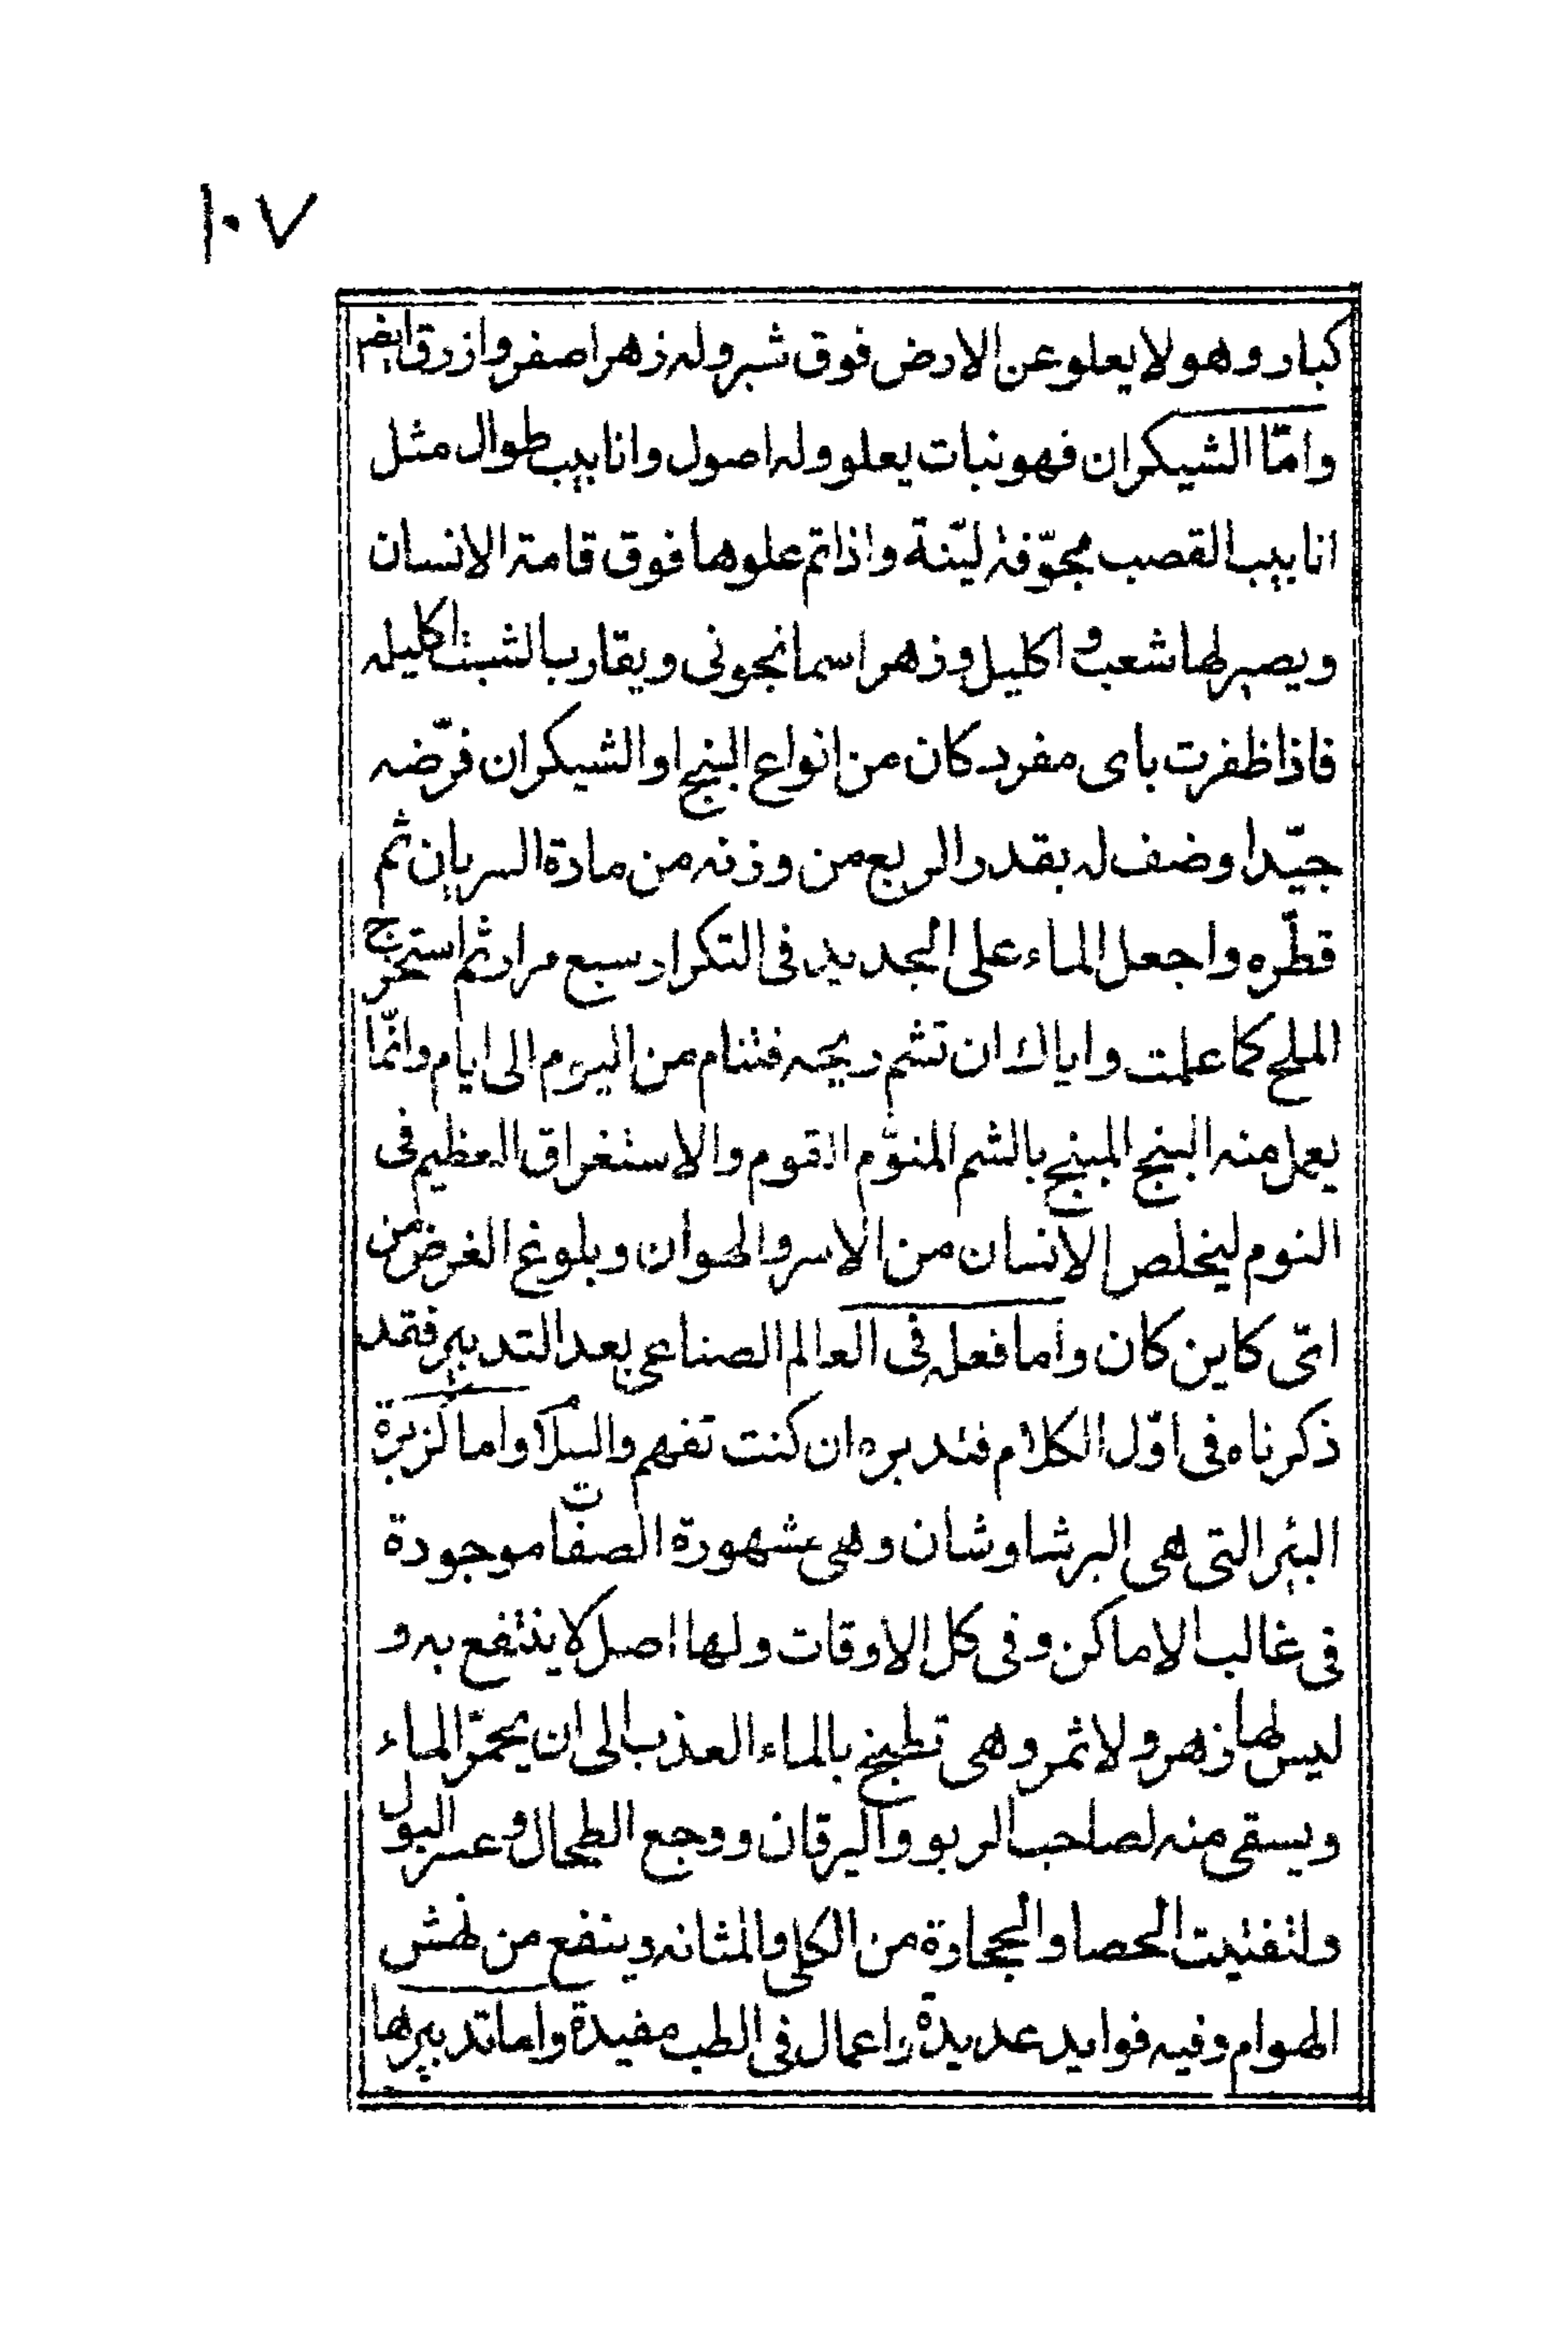 ١٠٧
كبار وهو لا يعلو عن الارض فوق شبر وله زهر اصفر وازرق ايض
وامّا الشيكران فهو نبات يعلو وله اصول وانابيب طوال مثل
انابيب القصب مجوّفة ليّنة واذا تم علوها فوق قامة الانسان
ويصير لها شعب و اكليل وزهر اسمانجونى ويقارب الشبث اكليله
فاذا ظفرت باى مفرد كان من انواع البنج او الشيكران فرّضه
جيّدا وضف له بقدر الربع من وزنه من مادة السريان ثم
قطّره واجعل الماء على الجديد فى التكرار سبع مرار ثم استخرج
الملح كما علمت واياك ان تشم ريحه فتنام من اليوم الى ايام وانّما
يعمل منه البنج المبنج بالشم المنوّم القوم والاستغراق العظيم فى
النوم ليخلص الانسان من الاسر والهوان وبلوغ الغرض من
اىّ كاين كان واما فعله فى العالم الصناعى بعد التدبير فقد
ذكرناه فى اوّل الكلام فتدبره ان كنت تفهم والسلام واما كزبرة
البئر التى هى البرشاوشان وهى مشهورة الصفات موجودة
فى غالب الاماكن وفى كل الاوقات ولها اصل لا ينتفع به و
ليس لها زهر ولا ثمر وهى تطبخ بالماء العذب الى ان يحمرّ الماء
ويسقى منه لصاحب الربو واليرقان ووجع الطحال وعسر البول
ولتفتيت الحصا والحجارة من الكلى والمثانه وينفع من نهش
الهوام وفيه فوايد عديدة واعمال فى الطب مفيدة واما تدبيرها